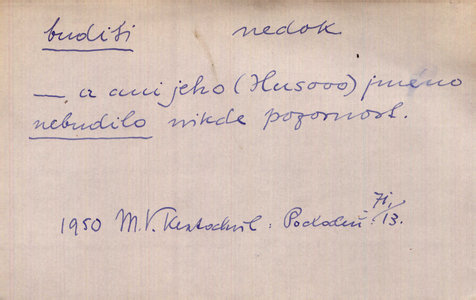 buditi nedok
—, a ani jeho (Husovo) jméno
nebudilo nikde pozornost.
1950 M.V. Kratochvíl: Pochodeň 71/13.